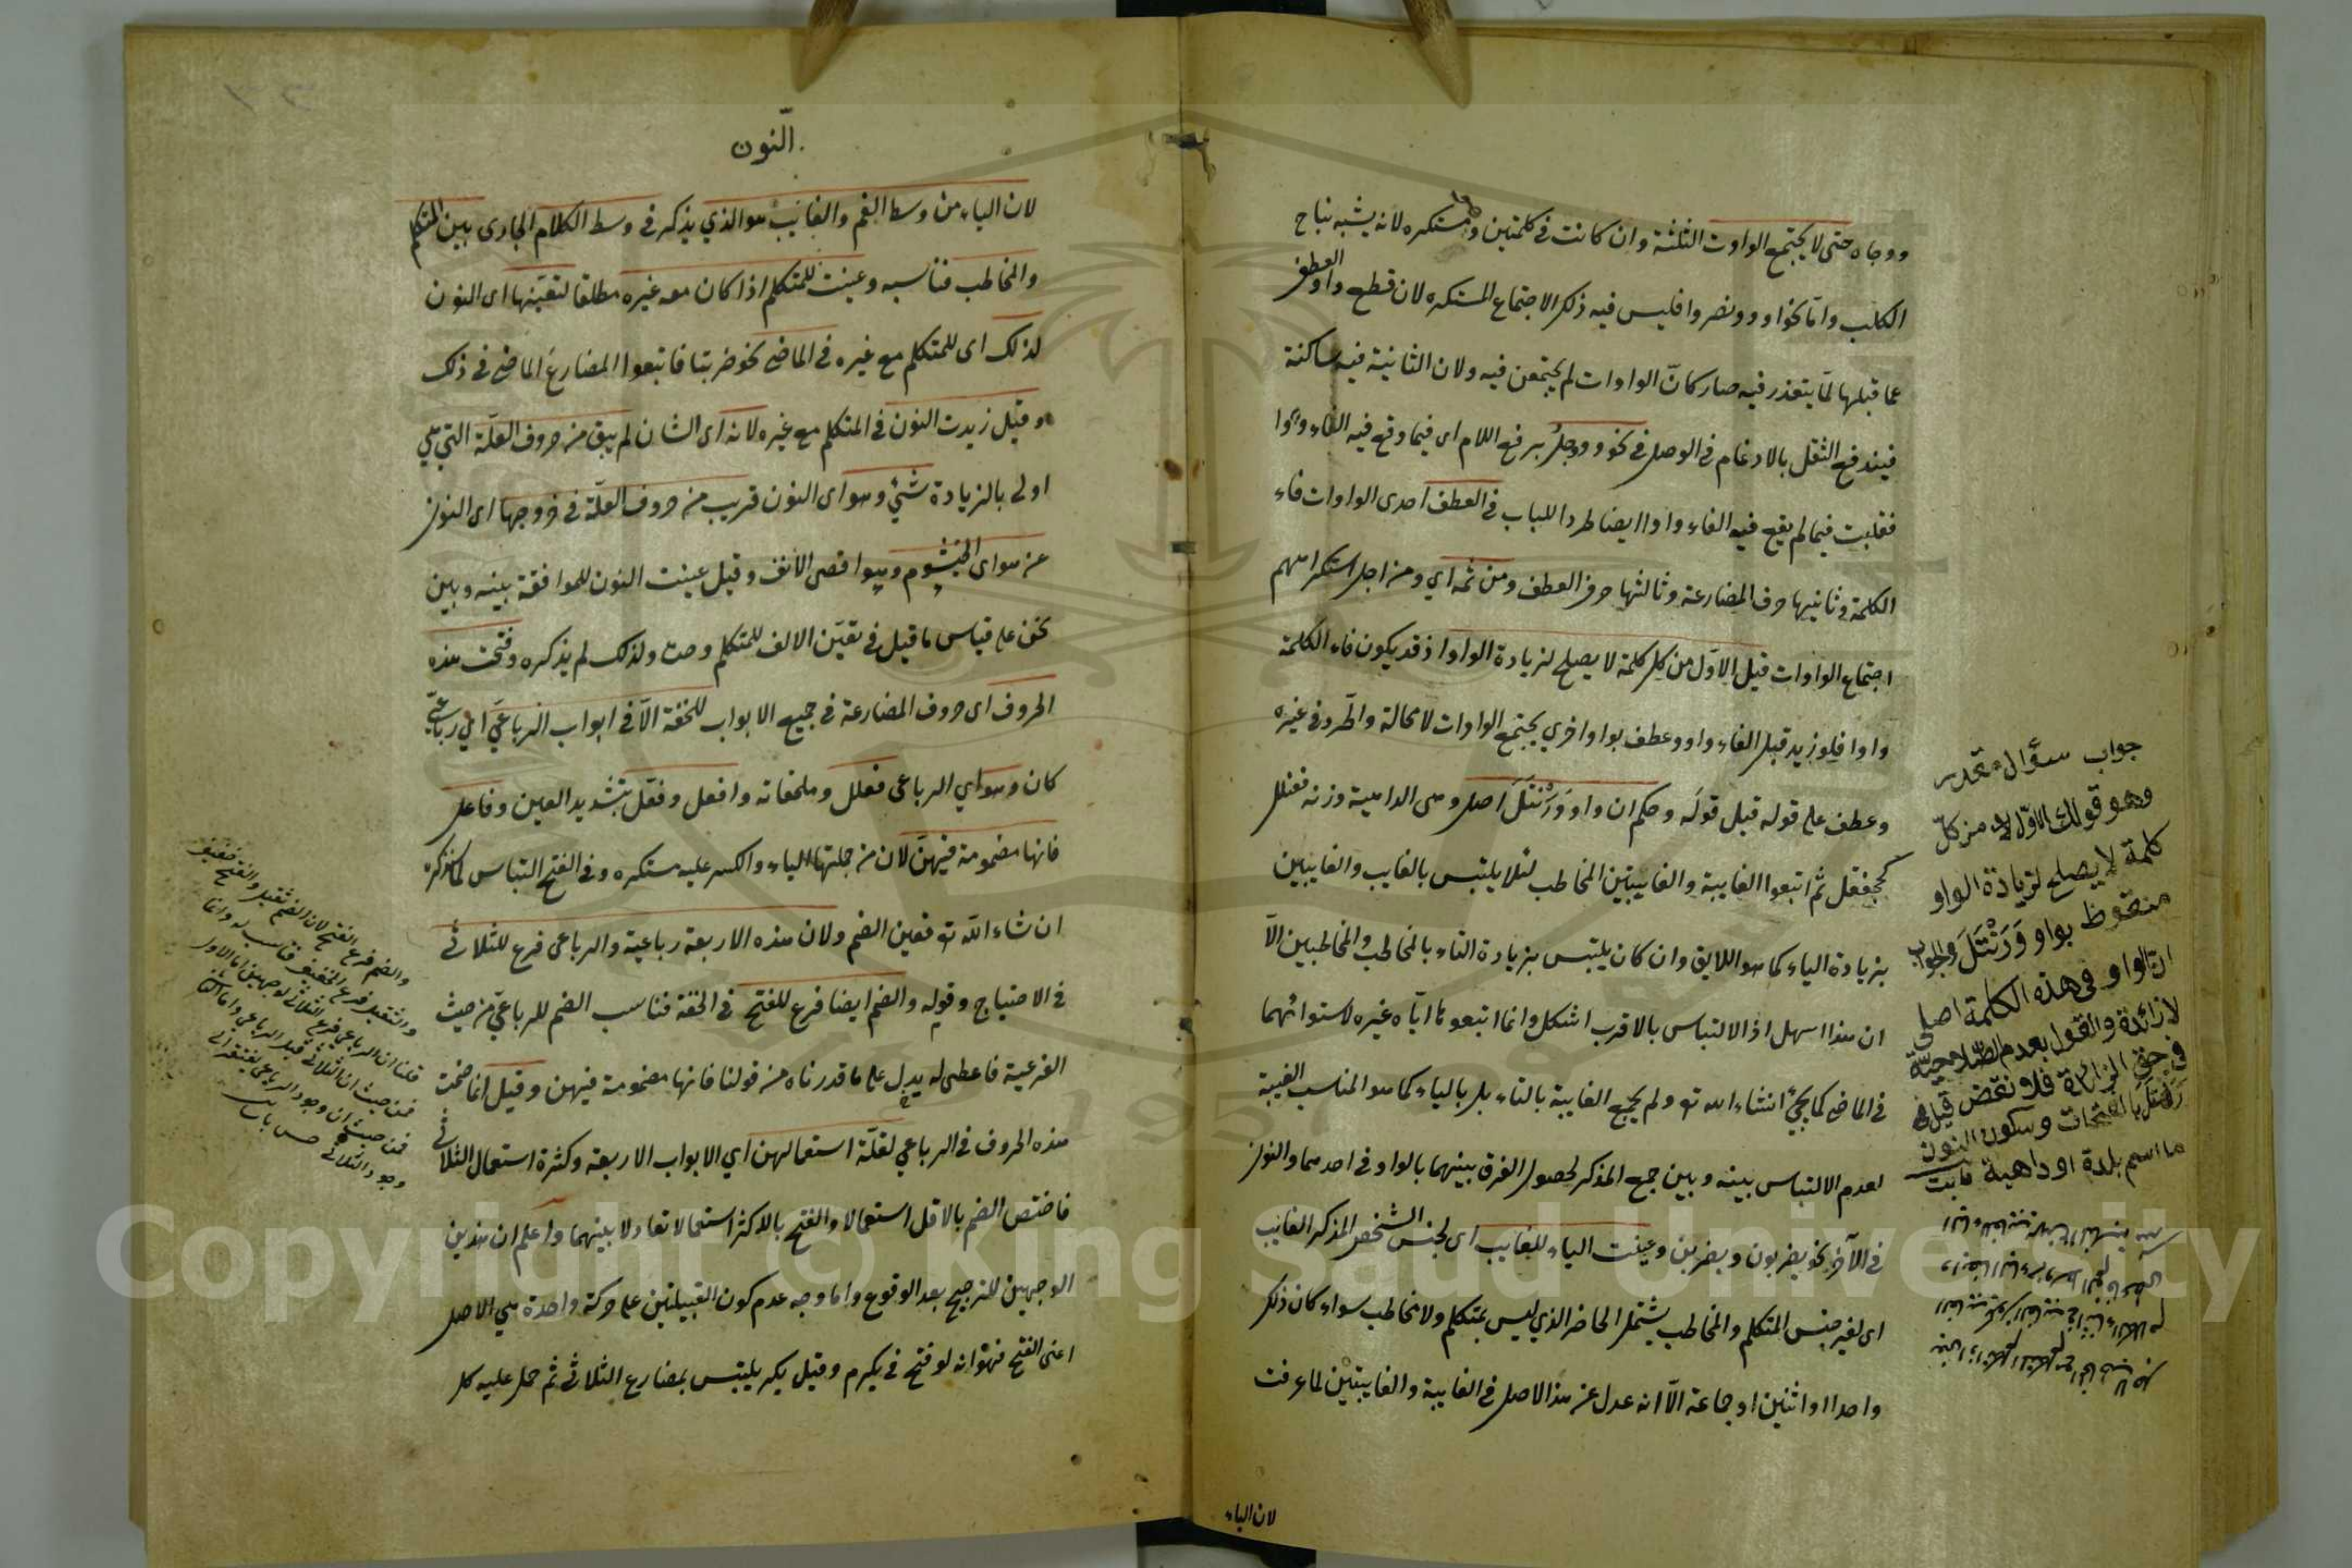 ووجاه حتى لا يجتمع الواوت الثلثة وان كانت في كلمتين وهو مستكره لانه يشبه نباح
الكلب وامّا نحو او وو نضروا فليس فيه ذلك الاجتماع المستكره لان قطع واو العطف
عما قبلها لمّا يتعذر فيه صار كانّ الواوات لم يجتمعن فيه ولان الثانية فيه ساكنة
فيندفع الثقل بالادغام في الوصل في نحو ووجل برفع اللام اى فيما وقع فيه الفاء واوا
فقلبت فيما لم يقع فيه الفاء واوا ايضا طردا للباب في العطف احدى الواوات فاء
الكلمة وثانيها حرف المضارعة وثالثها حرف العطف ومن ثمه اي ومن اجل استكراههم
اجتماع الواوات قيل الاوّل من كل كلمة لا يصلح لزيادة الواو اذ قد يكون فاء الكلمة
واوا فلو زيد قبل الفاء واو وعطف بواو اخري يجتمع الواوات لا محالة واطّرد في غيره
وعطف على قوله قيل قولَه وحكم ان واو وَرَنْتَلَ اصل وهى الداهية وزنه فعنلل
كجحفل ثم اتبعوا الغايبة والغايبتين المخاطب لئلا يلتبس بالغايب والغايبين
بزيادة الياء كما هو اللايق وان كان يلتبس بزيادة التاء بالمخاطب والمخاطبين الّا
ان هذا اسهل اذ الالتباس بالاقرب اشكل وانما اتبعوهما ايّاه غيره لاستوائهما
في الماضي كما يجئ انشاء الله تع ولم يجمع الغايبة بالتاء بل بالياء كما هو المناسب الغيبة
لعدم الالتباس بينه وبين جمع المذكر لحصول الفرق بينهما بالواو في احدهما والنون
في الآخر نحو يضربون ويضربن وعينت الياء للغايب اى لجنس الشخص المذكر الغايب
اى لغير جنس المتكلم والمخاطب يشتمل الحاضر الذي ليس بمتكلم ولا مخاطب سواء كان ذلك
واحدا او اثنين او جماعة الّا انه عدل عن هذا الاصل في الغايبة والغايبتين لما عرفت
لان الياء
جواب سؤال مقدر
وهو قولك الاوّل من كلّ
كلمة لا يصلح لزيادة الواو
منقوظ بواو وَرَنْتَلَ والجواب
انّ الواو فى هذه الكلمة اصلى
لا زائدة والقول بعدم الصّلاحيّة
فى حقّ الزيادة فلا نقض قيل فى
رَنْتَلَ بالفتحات وسكون النون
ما اسم بلدة او داهية
النون
لان الياء من وسط الفم والغايب هو الذي يذكر في وسط الكلام الجارى بين المتكلم
والمخاطب فناسبه وعينت للمتكلم اذا كان معه غيره مطلقا لتعيّنها اى النون
لذلك اى للمتكلم مع غيره في الماضي نحو ضربنا فاتبعوا المضارع الماضي في ذلك
وقيل زيدت النون في المتكلم مع غيره لانه اى الشان لم يبق من حروف العلّة التي هي
اولى بالزيادة شئ وهو اى النون قريب من حروف العلّة في خروجها اى النون
عن هواى الخيشوم وهو اقصى الانف وقيل عينت النون للموافقة بينه وبين
نحن على قياس ما قيل في تعيّن الالف للمتكلم وحده ولذلك لم يذكره وفتحت هذه
الحروف اى حروف المضارعة في جميع الابواب للخفة الّا في ابواب الرباعي اي رباعيّ
كان وهو اي الرباعى فعلل وملحقاته وافعل وفعّل بتشديد العين وفاعل
فانها مضمومة فيهنّ لان من جملتها الياء والكسر عليه مستكره وفي الفتح التباس كما نذكره
ان شاء الله تع فعين الضم ولان هذه الاربعة رباعية والرباعى فرع للثلاثي
في الاحتياج وقوله والضم ايضا فرع للفتح في الخفة فناسب الضم للرباعيّ من حيث
الفرعية فاعطى له يدل على ما قدرناه من قولنا فانها مضمومة فيهن وقيل انما ضمت
هذه الحروف في الرباعي لقلّة استعمالهن اي الابواب الاربعة وكثرة استعمال الثلاثي
فاختص الضم بالاقل استعمالا والفتح بالاكثر استعمالا تعادلا بينهما واعلم ان هذين
الوجهين للترجيح بعد الوقوع واما وجه عدم كون القبيلتين على حركة واحدة هي الاصل
اعنى الفتح فهو انه لو فتح في يكرم وقيل يكرم يلتبس بمضارع الثلاثي ثم حمل عليه كل
والضم فرع الفتح لان الضم ثقيل والفتح خفيف
والثقيل فرع الخفيف فناسب له وانما
قلنا ان الرباعي فرع الثلاثي لوجهين اما الاول
فمن حيث ان الثلاثي قبل الرباعي واما الثاني
فمن حيث ان وجود الرباعى يفتقر الى
وجود الثلاثي
Copyright © King Saud University
1957